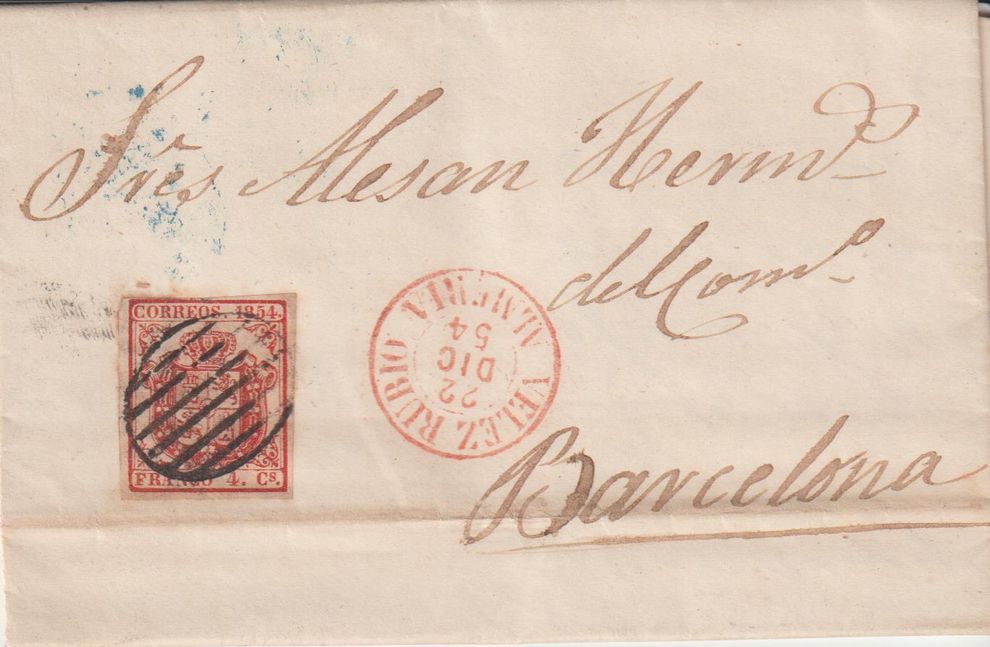 Sres Alesan Hermo.
del Como.
CORREOS. 1854.
FRANCO 4. Cs.
VELEZ RUBIO
ALMERIA
22
DIC
54
Barcelona